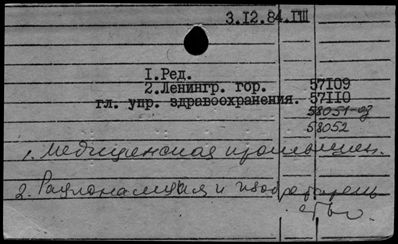 3.12.84.ГПП
1.Ред.
2.Ленингр. гор. 57109
гл. упр. здравоохранения. 57110
58051-оз
58052
1. Медицинская промышлен.
2. Рационализация и изобретатель
ство